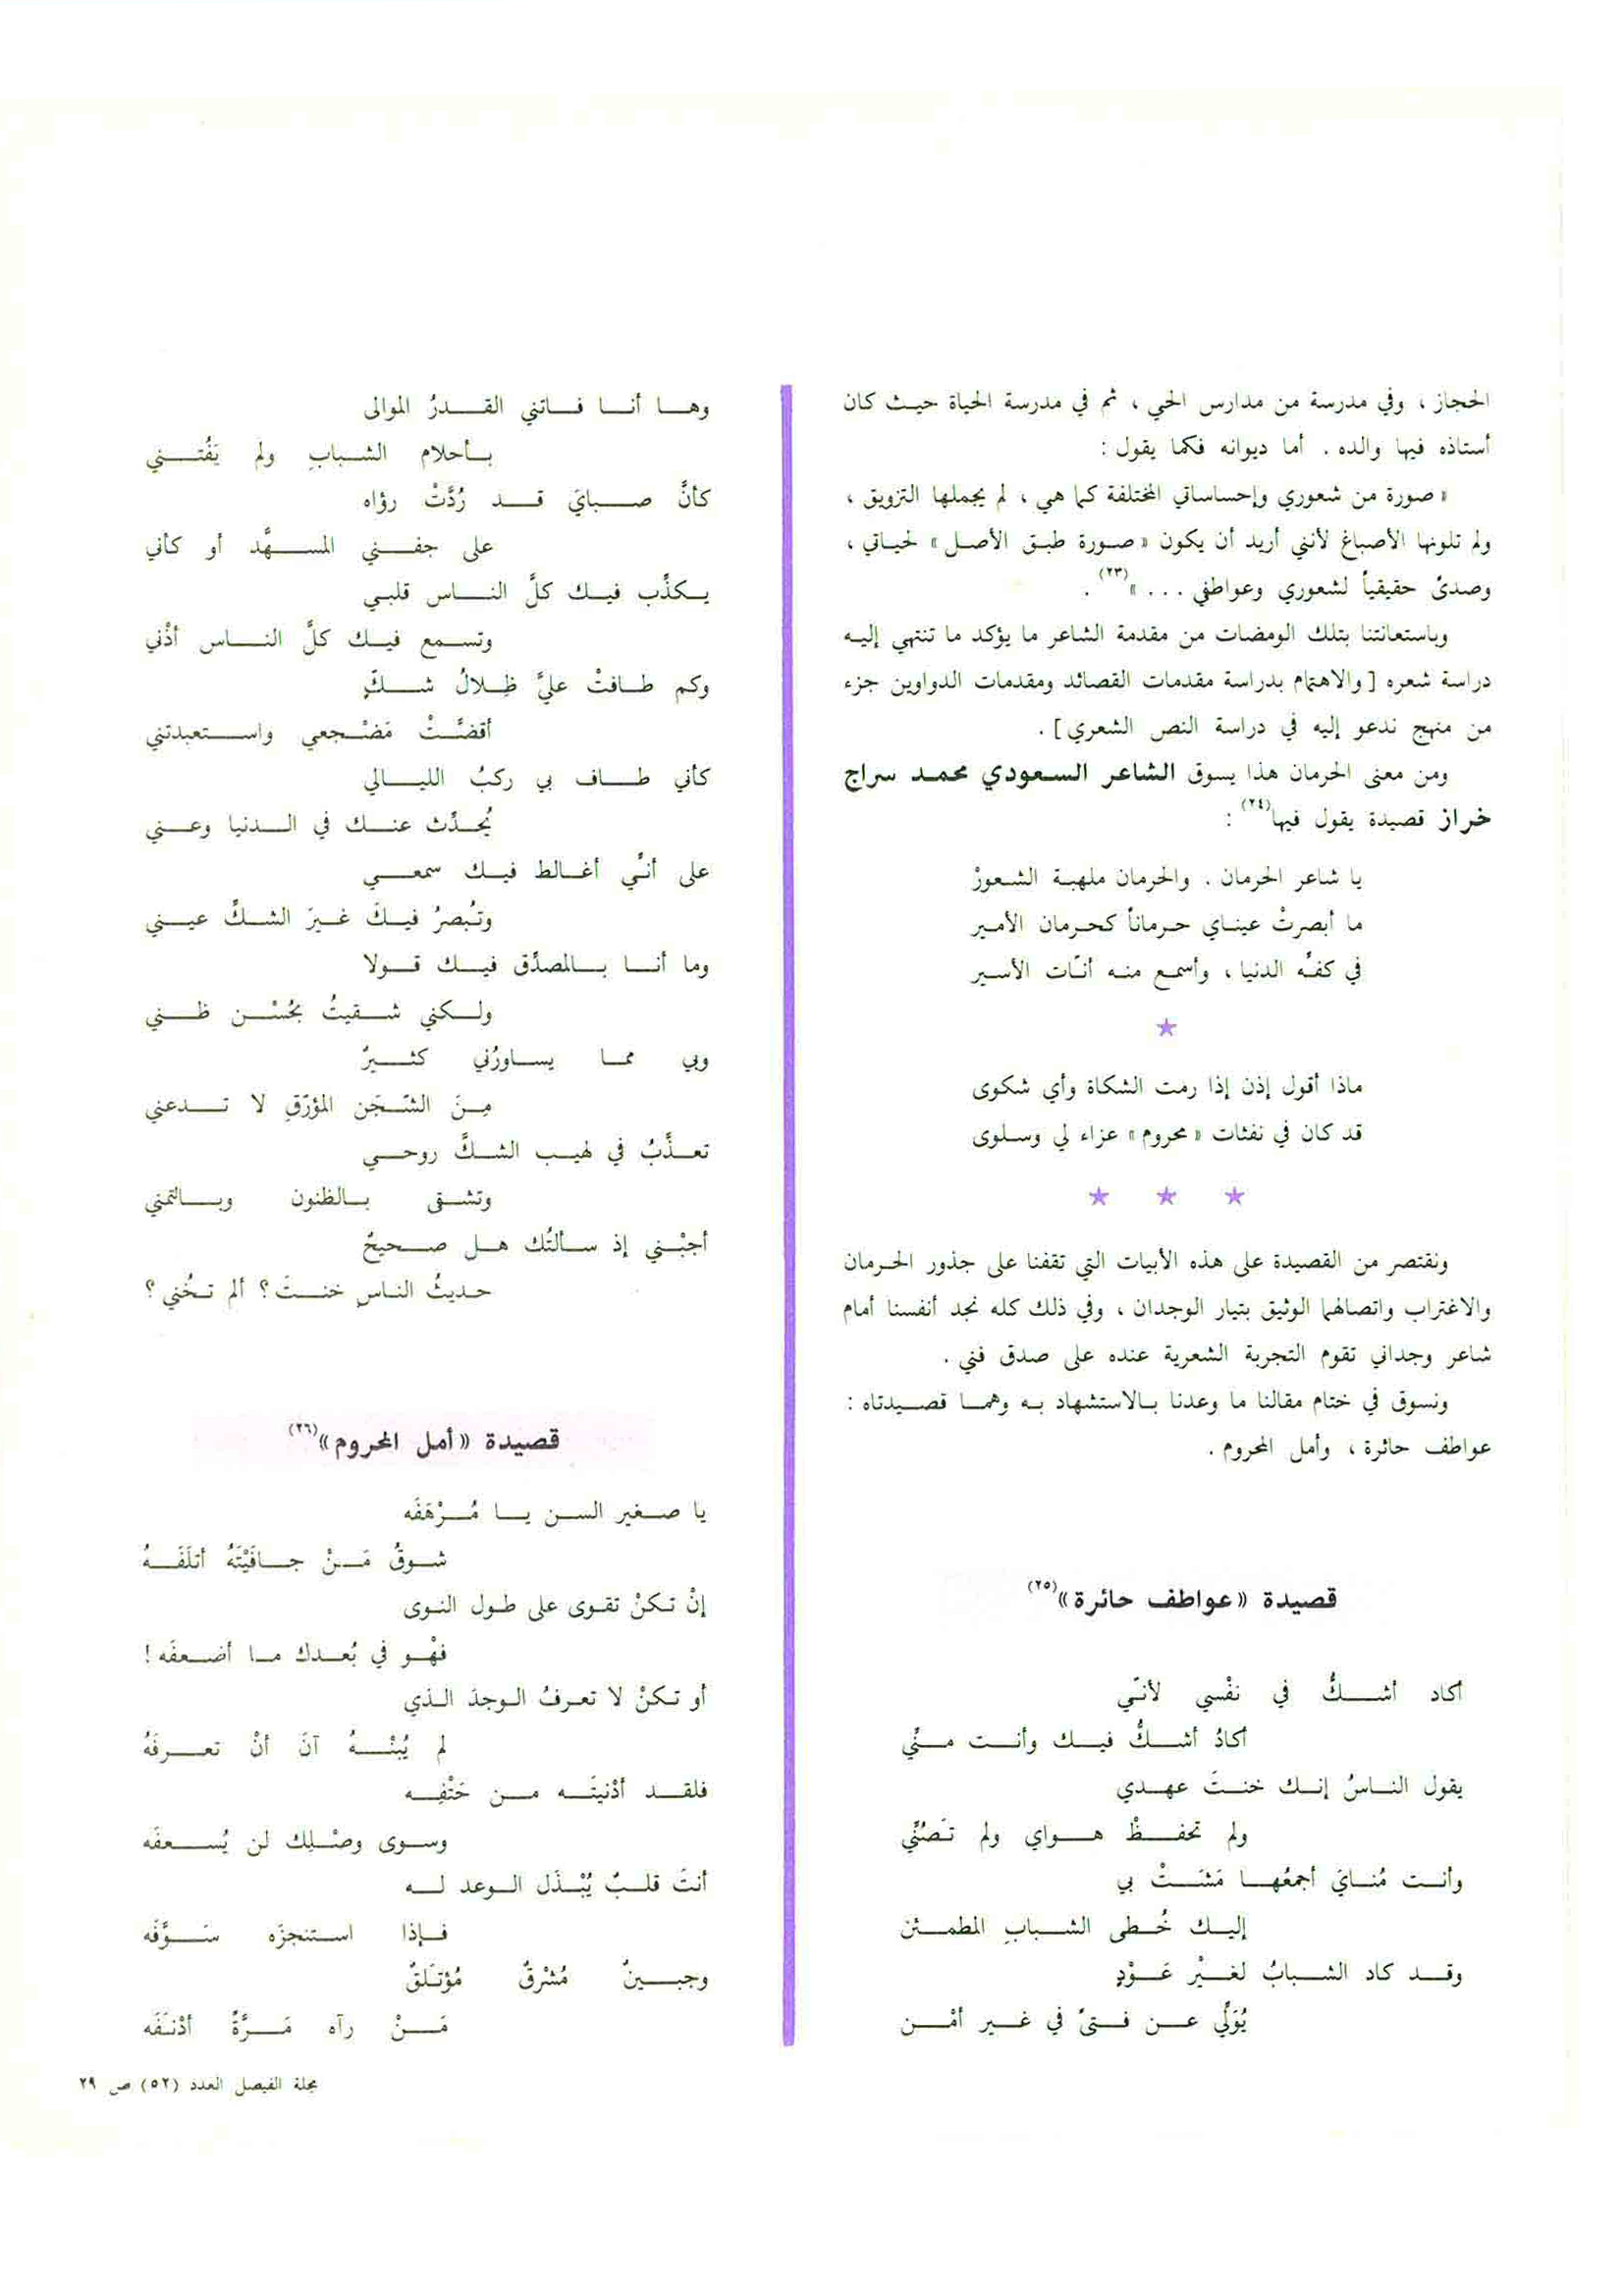 الحجاز ، وفي مدرسة من مدارس الحي ، ثم في مدرسة الحياة حيث كان
أستاذه فيها والده . أما ديوانه فكما يقول :
« صورة من شعوري وإحساساتي المختلفة كما هي ، لم يجملها التزويق ،
ولم تلونها الأصباغ لأنني أريد أن يكون « صورة طبق الأصل » لحياتي ،
وصدىً حقيقياً لشعوري وعواطفي . . . »(٢٣) .
وباستعانتنا بتلك الومضات من مقدمة الشاعر ما يؤكد ما تنتهي إليه
دراسة شعره [ والاهتمام بدراسة مقدمات القصائد ومقدمات الدواوين جزء
من منهج ندعو إليه في دراسة النص الشعري ] .
ومن معنى الحرمان هذا يسوق الشاعر السعودي محمد سراج
خراز قصيدة يقول فيها(٢٤) :
يا شاعر الحرمان . والحرمان ملهبة الشعورْ
ما أبصرتْ عيناي حرماناً كحرمان الأمير
في كفّه الدنيا ، وأسمع منه أنّات الأسير
★
ماذا أقول إذن إذا رمت الشكاة وأي شكوى
قد كان في نفثات « محروم » عزاء لي وسلوى
★ ★ ★
ونقتصر من القصيدة على هذه الأبيات التي تقفنا على جذور الحرمان
والاغتراب واتصالهما الوثيق بتيار الوجدان ، وفي ذلك كله نجد أنفسنا أمام
شاعر وجداني تقوم التجربة الشعرية عنده على صدق فني .
ونسوق في ختام مقالنا ما وعدنا بالاستشهاد به وهما قصيدتاه :
عواطف حائرة ، وأمل المحروم .
قصيدة «عواطف حائرة»(٢٥)
أكاد أشكُّ في نفْسي لأنّي
أكادُ أشكُّ فيك وأنت منّي
يقول الناسُ إنك خنتَ عهدي
ولم تحفظْ هواي ولم تَصُنّي
وأنت مُنايَ أجمعُها مَشَتْ بي
إليك خُطى الشبابِ المطمئن
وقد كاد الشبابُ لغيْر عَوْدٍ
يُوَلّي عن فتىً في غير أمْن
وها أنا فاتني القدرُ الموالى
بأحلام الشبابِ ولم يَفُتني
كأنَّ صبايَ قد رُدَّتْ رؤاه
على جفني المسهَّد أو كأني
يكذّب فيك كلَّ الناس قلبي
وتسمع فيك كلَّ الناس أذْني
وكم طافتْ عليَّ ظِلالُ شكٍّ
أقضَّتْ مَضْجعي واستعبدتني
كأني طاف بي ركبُ الليالي
يُحدّث عنك في الدنيا وعني
على أنّي أغالط فيك سمعي
وتُبصرُ فيكَ غيرَ الشكّ عيني
وما أنا بالمصدّق فيك قولا
ولكني شقيتُ بحُسْن ظني
وبي مما يساورُني كثيرٌ
مِنَ الشّجَن المؤرّقِ لا تدعني
تعذَّبُ في لهيب الشكّ روحي
وتشقى بالظنون وبالتمني
أجبْني إذ سألتُك هل صحيحٌ
حديثُ الناسِ خنتَ ؟ ألم تخُني ؟
قصيدة «أمل المحروم»(٢٦)
يا صغير السن يا مُرْهَفَه
شوقُ مَنْ جافَيْتَهُ أتلَفَهُ
إنْ تكنْ تقوى على طول النوى
فهْو في بُعدك ما أضعفَه !
أو تكنْ لا تعرفُ الوجدَ الذي
لم يُبْنهُ آنَ أنْ تعرفَهُ
فلقد أدْنيتَه من حَتْفِه
وسوى وصْلِك لن يُسعفَه
أنتَ قلبٌ يُبْذَل الوعد له
فإذا استنجزَه سَوَّفَه
وجبينٌ مُشْرقٌ مُؤتَلقٌ
مَنْ رآه مَرَّةً أدْنَفَه
مجلة الفيصل العدد (٥٢) ص ٢٩